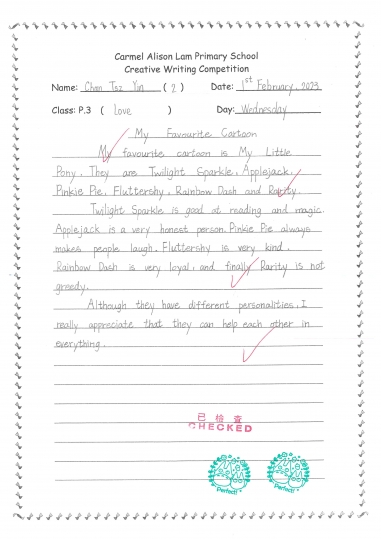 Carmel Alison Lam Primary School
Creative Writing Competition
Name: Chan Tsz Yin ( 2 ) Date: 1st February, 2023
Class: P.3 ( Love ) Day: Wednesday
My Favourite Cartoon
My favourite cartoon is My Little
Pony. They are Twilight Sparkle, Applejack,
Pinkie Pie, Fluttershy, Rainbow Dash and Rarity.
Twilight Sparkle is good at reading and magic.
Applejack is a very honest person. Pinkie Pie always
makes people laugh. Fluttershy is very kind.
Rainbow Dash is very loyal, and finally Rarity is not
greedy.
Although they have different personalities, I
really appreciate that they can help each other in
everything.
已檢查
CHECKED
Perfect!
Perfect!